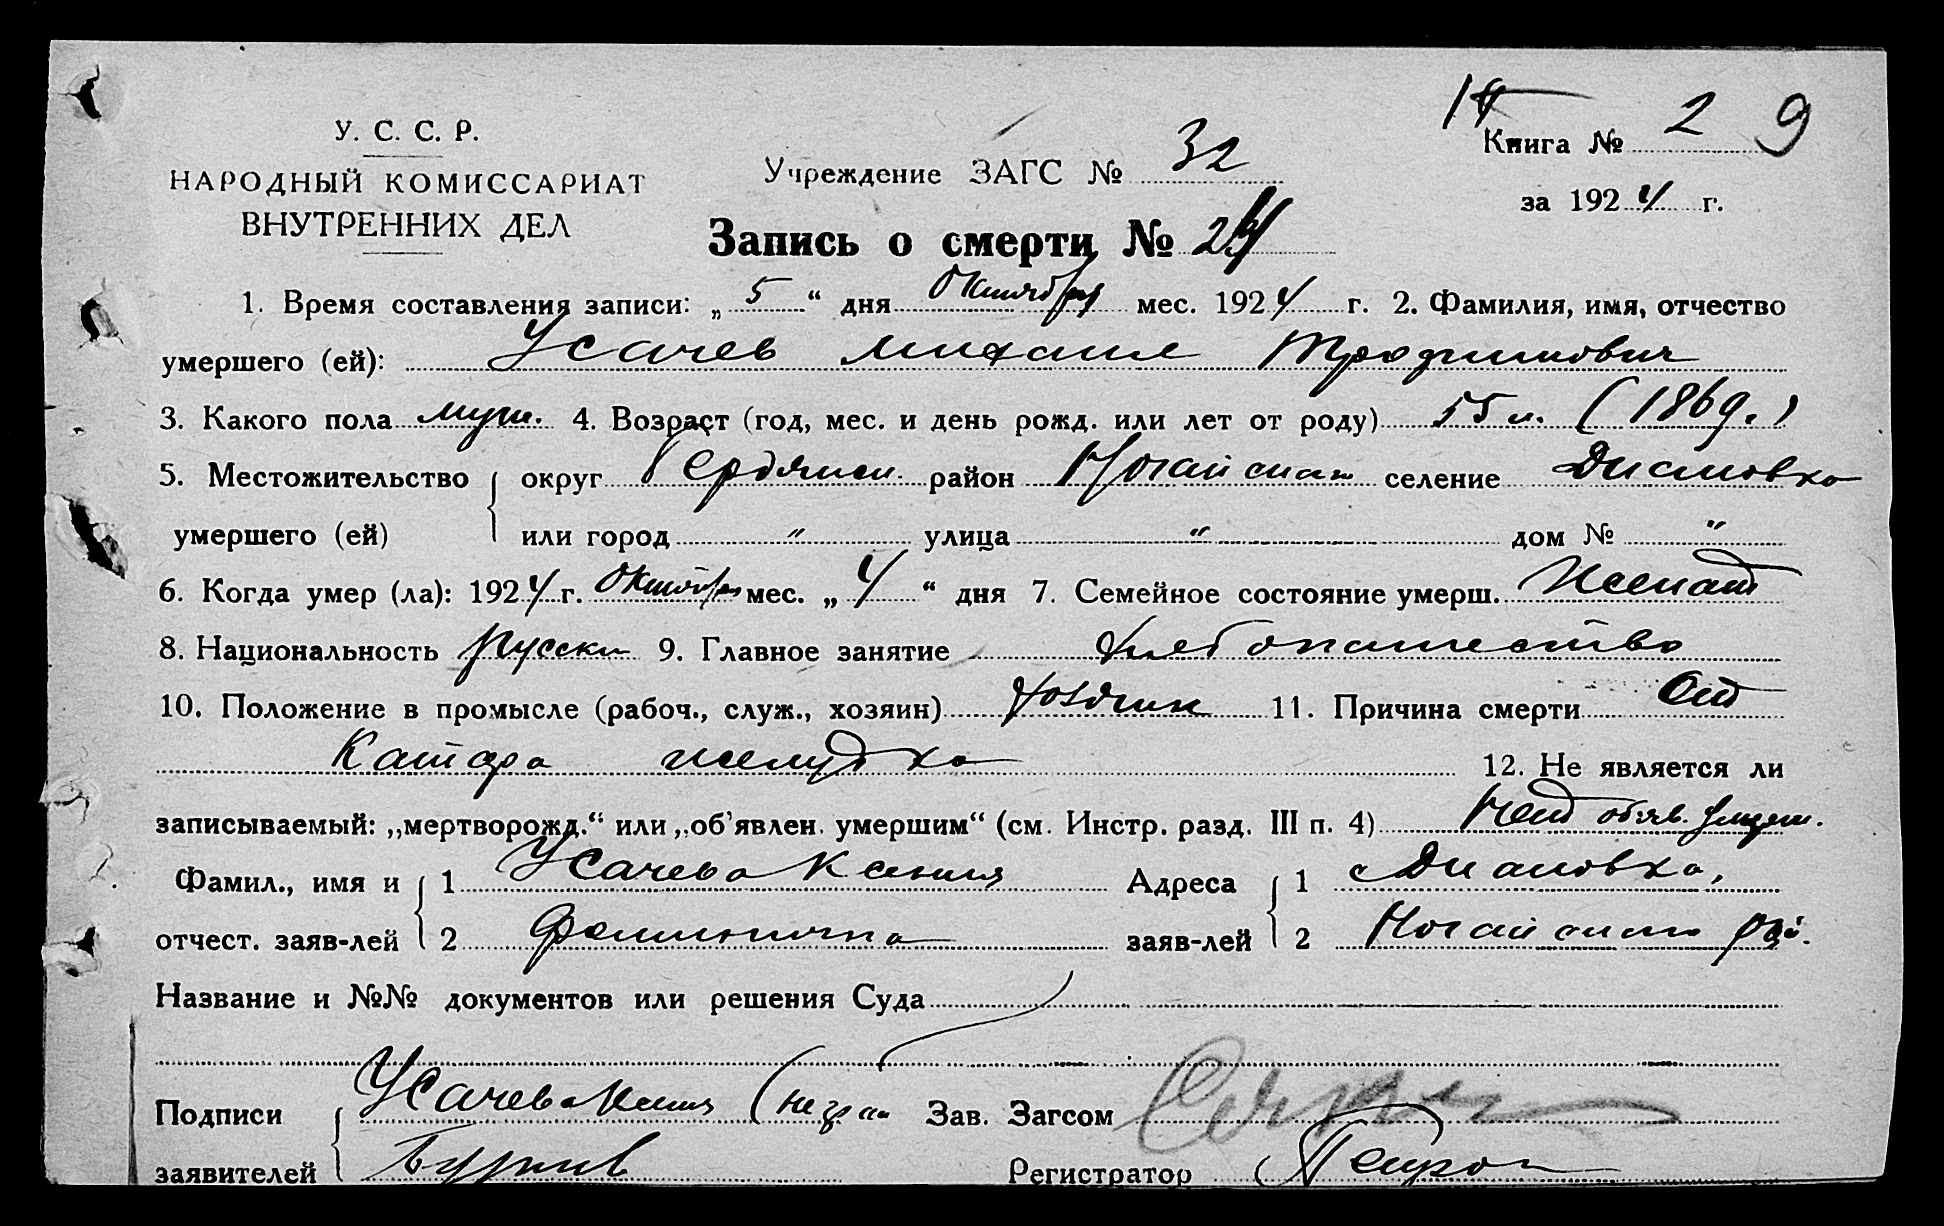 14
Книга № 2 9
У. С. С. Р.
НАРОДНЫЙ КОМИССАРИАТ
ВНУТРЕННИХ ДЕЛ
Учреждение ЗАГС № 32
за 1924 г.
Запись о смерти № 24
1. Время составления записи: „5“ дня Октября мес. 1924 г. 2. Фамилия, имя, отчество
умершего (ей): Усачев Михаил Трофимович
3. Какого пола муж. 4. Возраст (год, мес. и день рожд. или лет от роду) 55 л. (1869.)
5. Местожительство округ Бердянск. район Ногайский селение Диановка
умершего (ей) или город " улица " дом № "
6. Когда умер (ла): 1924 г. Октября мес. „4“ дня 7. Семейное состояние умерш. Женат
8. Национальность русский 9. Главное занятие Хлебопашество
10. Положение в промысле (рабоч., служ., хозяин) хозяин 11. Причина смерти От
Катара желудка 12. Не является ли
записываемый: „мертворожд.“ или „об'явлен. умершим“ (см. Инстр. разд. III п. 4) Нет об'яв. умерш.
Фамил., имя и 1 Усачева Ксения Адреса 1 с Диановка,
отчест. заяв-лей 2 заяв-лей 2 Ногайского рай.
Название и №№ документов или решения Суда
Подписи Усачева Ксения Зав. Загсом
заявителей Регистратор